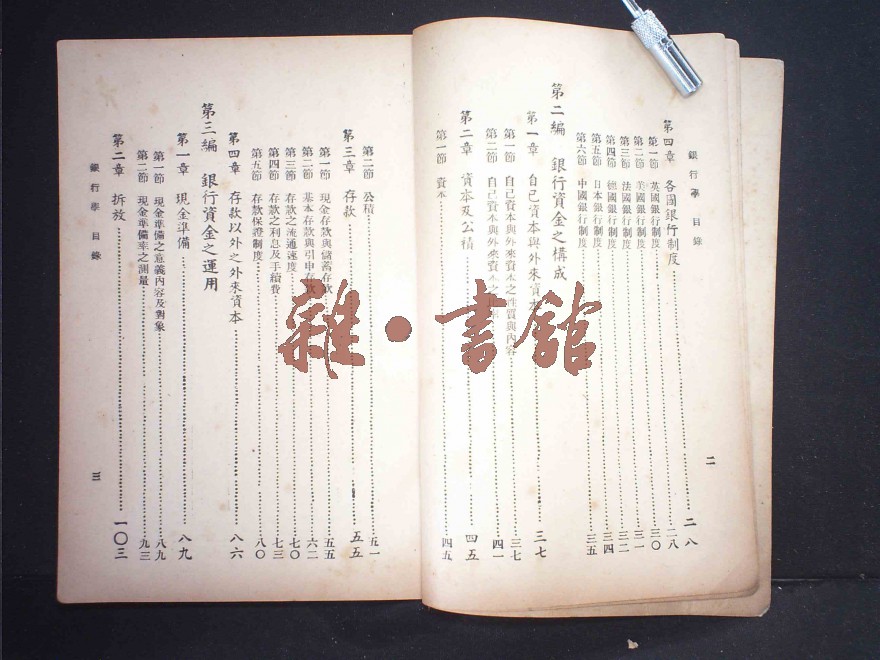 銀行學 目錄
二
第四章 各國銀行制度 二八
第一節 英國銀行制度 二八
第二節 美國銀行制度 三〇
第三節 法國銀行制度 三一
第四節 德國銀行制度 三二
第五節 日本銀行制度 三四
第六節 中國銀行制度 三五
第二編 銀行資金之構成
第一章 自己資本與外來資本 三七
第一節 自己資本與外來資本之性質與內容 三七
第二節 自己資本與外來資本之 四一
第二章 資本及公積 四五
第一節 資本 四五
第二節 公積 五一
第三章 存款 五五
第一節 現金存款與儲蓄存款 五五
第二節 基本存款與引申存款 六二
第三節 存款之流通速度 七〇
第四節 存款之利息及手續費 七三
第五節 存款保證制度 八〇
第四章 存款以外之外來資本 八六
第三編 銀行資金之運用
第一章 現金準備 八九
第一節 現金準備之意義內容及對象 八九
第二節 現金準備率之測量 九三
第二章 拆放 一〇三
銀行學 目錄
三
雜·書館